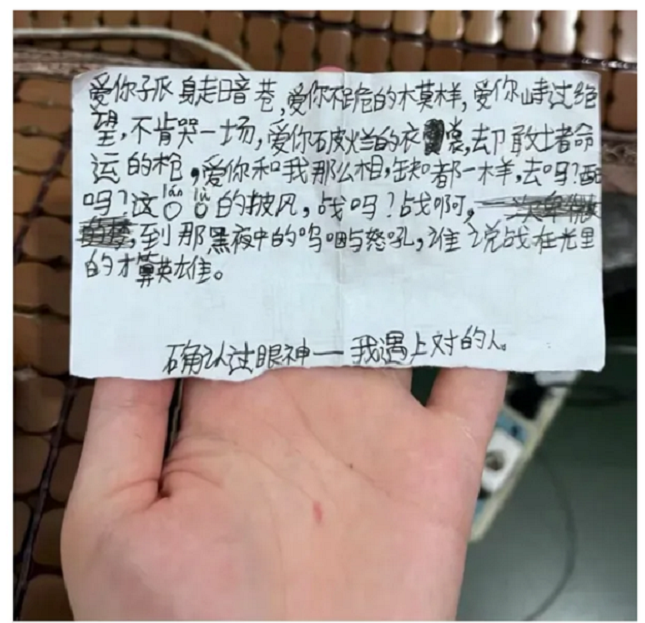 爱你孤身走暗巷,爱你不跪的模样,爱你对峙过绝
望,不肯哭一场,爱你破烂的衣裳,却敢堵命
运的枪,爱你和我那么相,缺都一样,去吗?配
吗?这lánlǚ的披风,战吗?战啊,
到那黑夜中的呜咽与怒吼,谁说战在光里
的才算英雄。
确认过眼神——我遇上对的人。